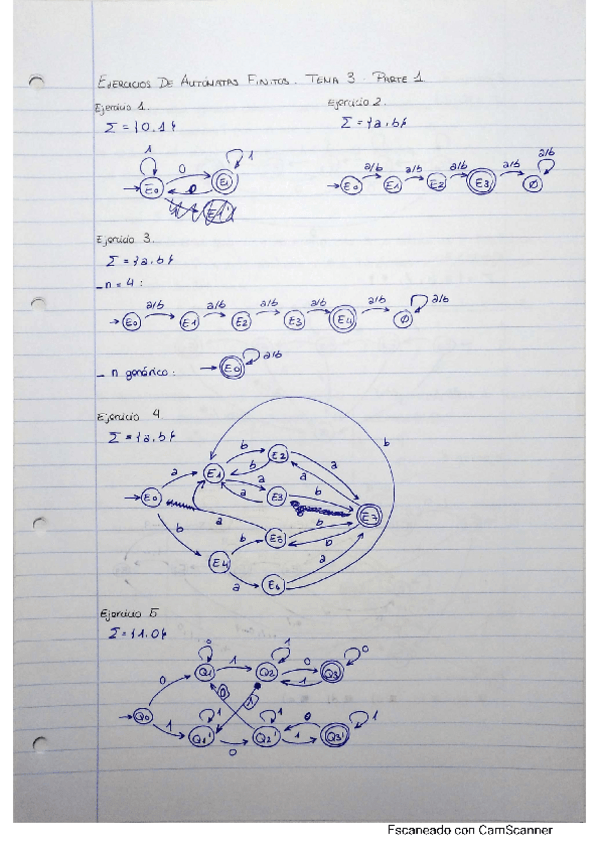 EJERCICIOS DE AUTÓMATAS FINITOS. TEMA 3. PARTE 1.
Ejercicio 1.
Σ = {0,1}
1
0
1
E0
0
E1
Ejercicio 2.
Σ = {a,b}
a/b a/b a/b a/b a/b a/b
E0 E1 E2 E3 Ø
Ejercicio 3.
Σ = {a,b}
_n = 4:
a/b a/b a/b a/b a/b a/b
E0 E1 E2 E3 E4 Ø
_ n genérico:
E0 a/b
Ejercicio 4.
Σ = {a,b}
b
a E1 b b E2 a a
E0 a a E3 b E7
b a E5 b b
E4 b a E6 a
Ejercicio 5
Σ = {1,0}
0 1 0
Q1 1 Q2 0 1 Q3
Q0 0 1 0 1
1 1 0 1
Q1' 0 Q2' 1 Q3'
Escaneado con CamScanner